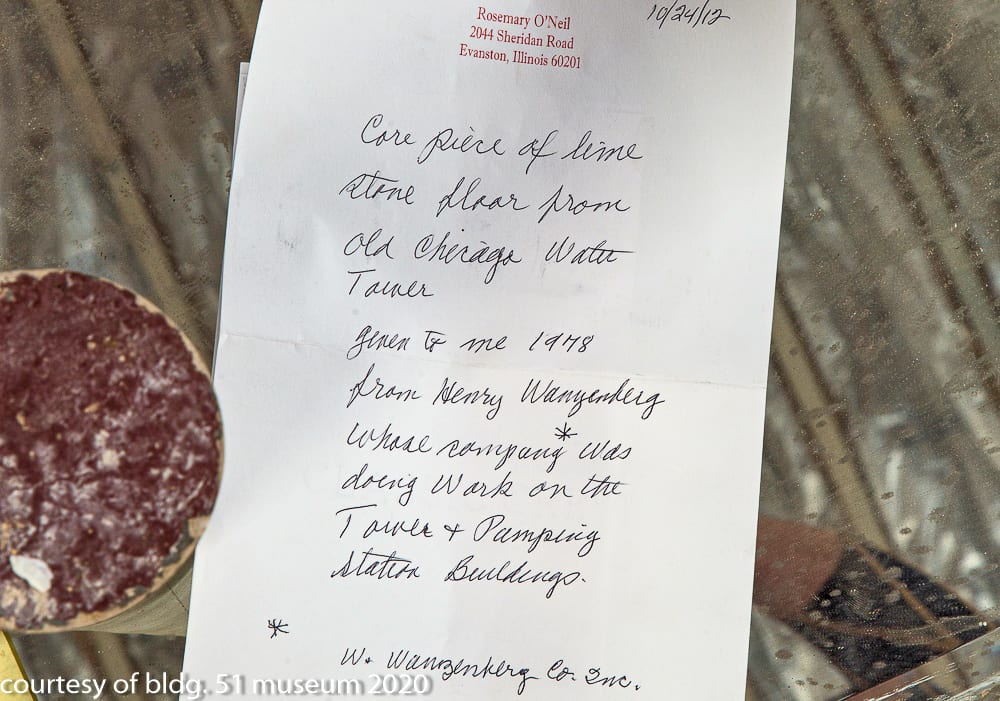 Rosemary O'Neil
2044 Sheridan Road
Evanston, Illinois 60201
10/24/12
Core piece of lime
stone floor from
old Chicago Water
Tower
given to me 1978
from Henry Wanzenberg
whose company * was
doing work on the
Tower + Pumping
Station Buildings.
*
W. Wanzenberg Co. Inc.
courtesy of bldg. 51 museum 2020